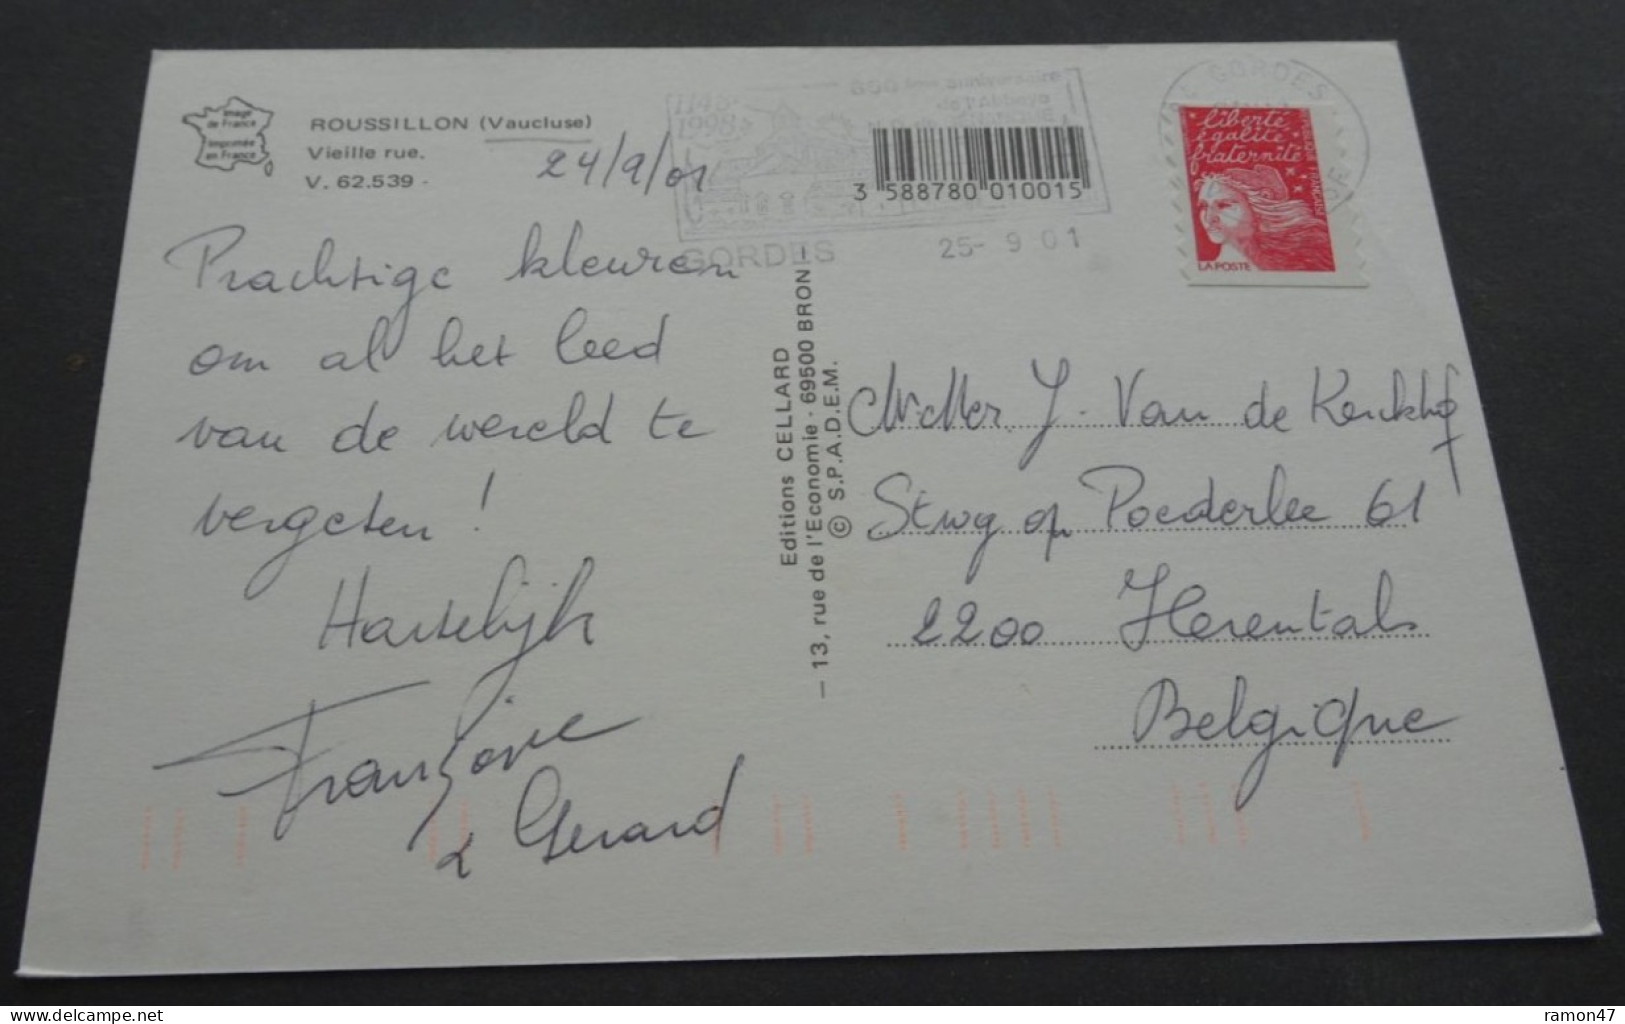 Image
de France
Imprimée
en France
ROUSSILLON (Vaucluse)
Vieille rue.
V. 62.539 -
24/9/01
Prachtige kleuren
om al het leed
van de wereld te
vergeten!
Hartelijk
Françoise
& Gerard
Editions CELLARD
— 13, rue de l'Economie - 69500 BRON —
© S.P.A.D.E.M.
1148
1998
ème anniversaire
de l'Abbaye
GORDES
25- 9 01
3 588780 010015
GORDES
liberté
égalité
fraternité
RÉPUBLIQUE FRANÇAISE
LA POSTE
J. Van de Kerckhof
Stwg op Poederlee 61
2200 Herentals
Belgique
ramon47